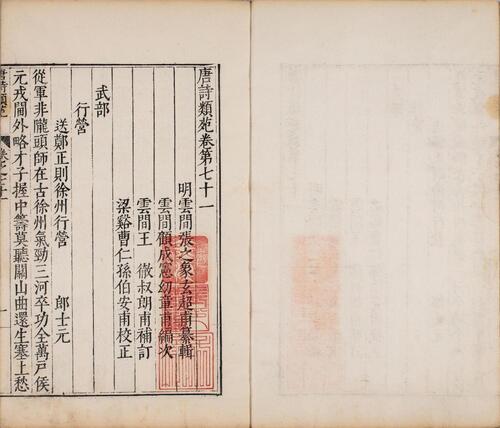 唐詩類苑卷第七十一
明雲間張之象玄超甫纂輯
雲間顧成憲幼章甫編次
雲間王徹叔朗甫補訂
梁谿曹仁孫伯安甫校正
武部
行營
送鄭正則徐州行營 郎士元
從軍非隴頭師在古徐州氣勁三河卒功全萬戶侯
元戎閫外略才子握中籌莫聽關山曲還生塞上愁
唐詩類苑
一